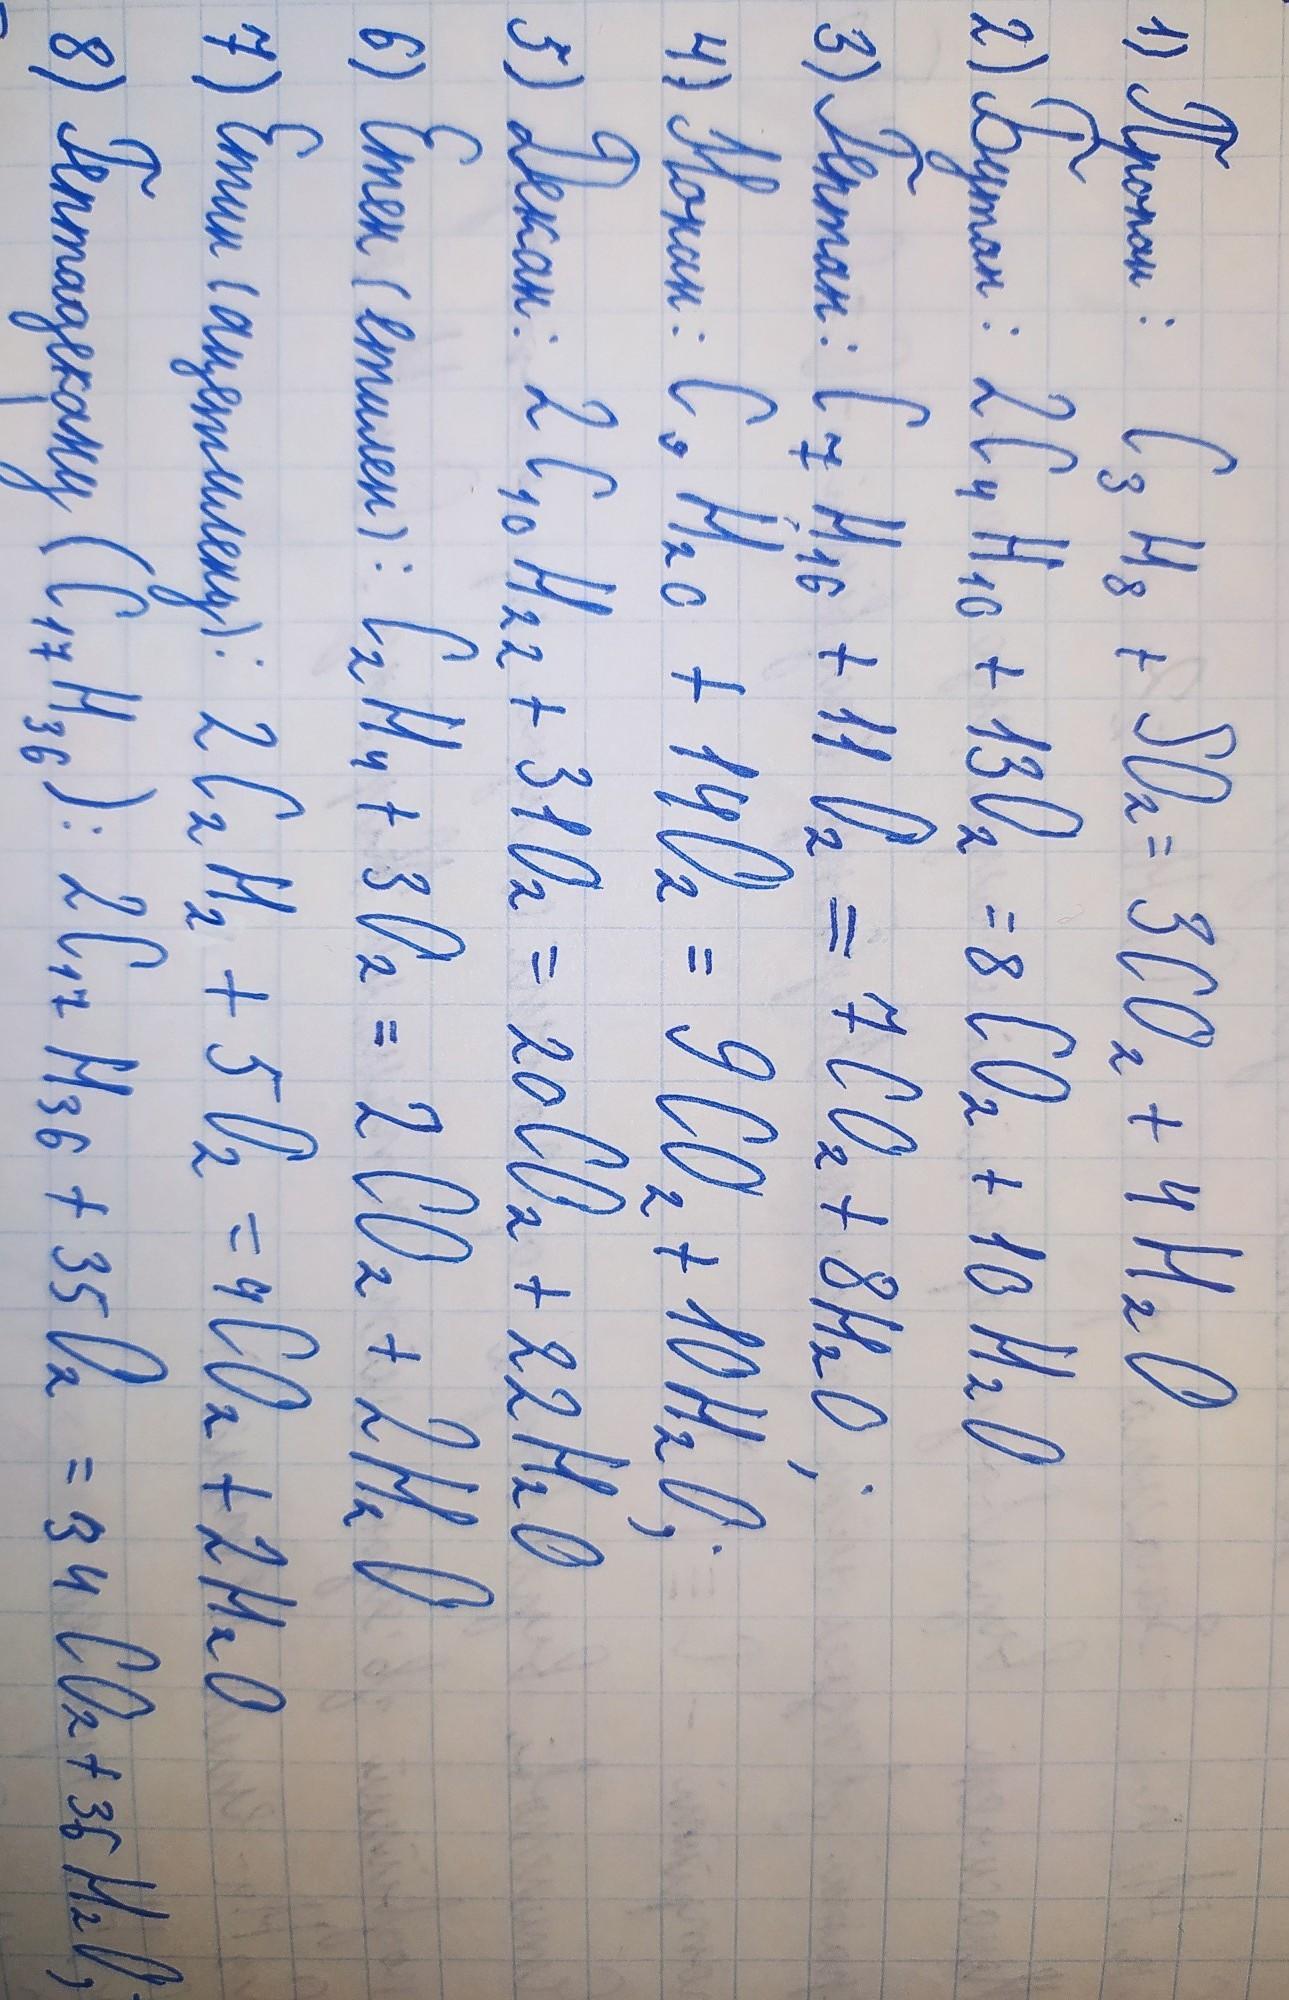 1) Пропан: C₃H₈ + 5O₂ = 3CO₂ + 4H₂O
2) Бутан: 2C₄H₁₀ + 13O₂ = 8CO₂ + 10H₂O
3) Гептан: C₇H₁₆ + 11O₂ = 7CO₂ + 8H₂O;
4) Нонан: C₉H₂₀ + 14O₂ = 9CO₂ + 10H₂O;
5) Декан: 2C₁₀H₂₂ + 31O₂ = 20CO₂ + 22H₂O
6) Етен (етилен): C₂H₄ + 3O₂ = 2CO₂ + 2H₂O
7) Етин (ацетилену): 2C₂H₂ + 5O₂ = 4CO₂ + 2H₂O
8) Гептадекану (C₁₇H₃₆): 2C₁₇H₃₆ + 35O₂ = 34CO₂ + 36H₂O;